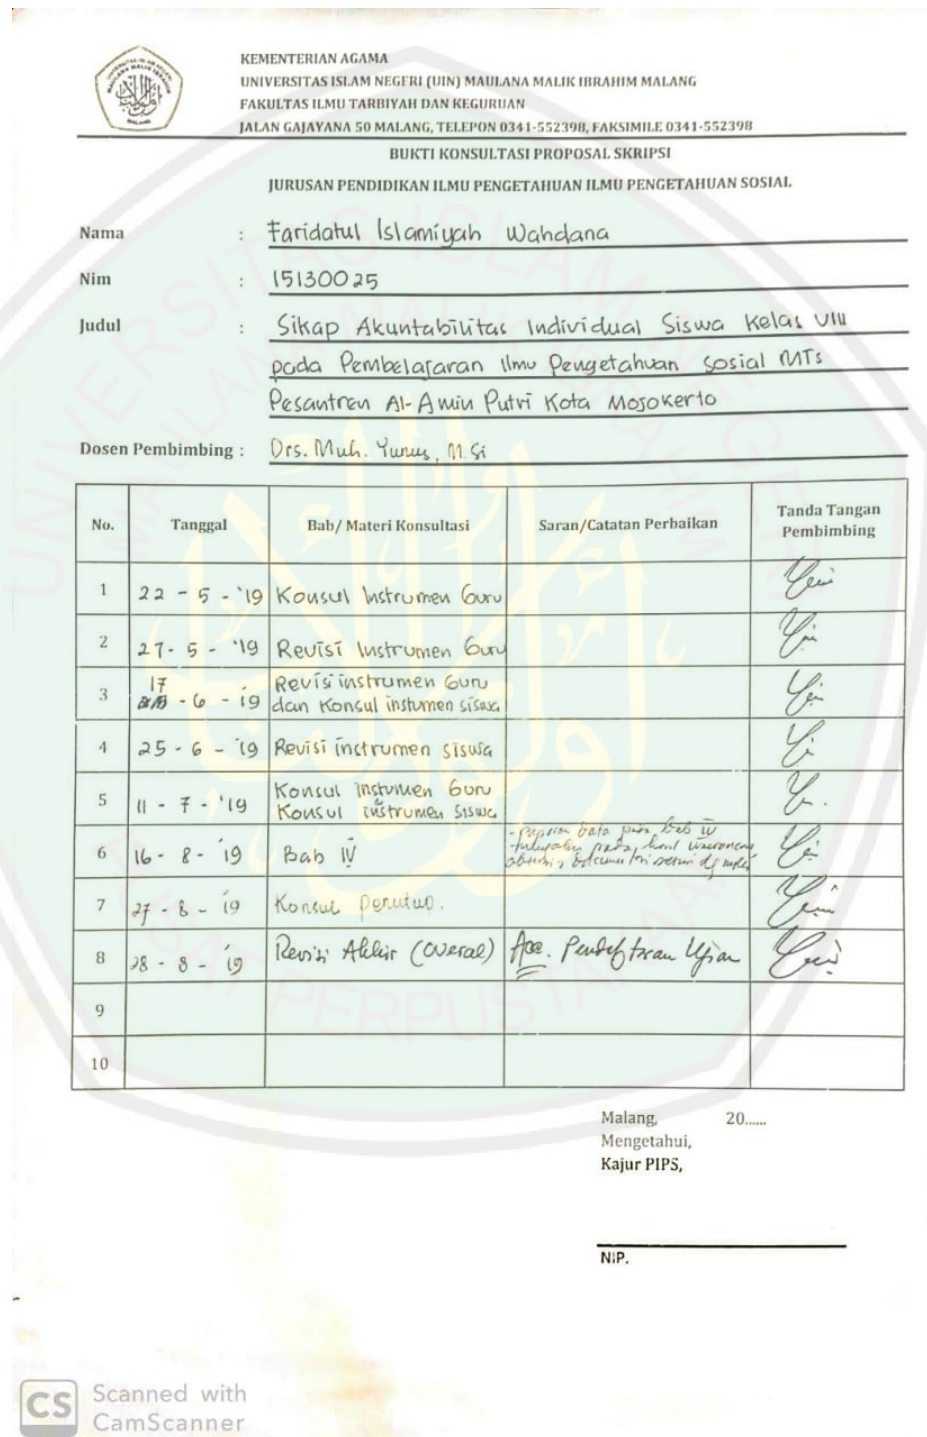 KEMENTERIAN AGAMA
UNIVERSITAS ISLAM NEGERI (UIN) MAULANA MALIK IBRAHIM MALANG
FAKULTAS ILMU TARBIYAH DAN KEGURUAN
JALAN GAJAYANA 50 MALANG, TELEPON 0341-552398, FAKSIMILE 0341-552398
BUKTI KONSULTASI PROPOSAL SKRIPSI
JURUSAN PENDIDIKAN ILMU PENGETAHUAN ILMU PENGETAHUAN SOSIAL
Nama : Faridatul Islamiyah Wahdana
Nim : 15130025
Judul : Sikap Akuntabilitas Individual Siswa Kelas VIII
pada Pembelajaran Ilmu Pengetahuan Sosial MTs
Pesantren Al-Amin Putri Kota Mojokerto
Dosen Pembimbing : Drs. Muh. Yunus, M.Si
No. Tanggal Bab/ Materi Konsultasi Saran/Catatan Perbaikan Tanda Tangan Pembimbing
1 22 - 5 - '19 Konsul Instrumen Guru
2 27 - 5 - '19 Revisi Instrumen Guru
3 17 - 6 - '19 Revisi instrumen Guru
dan Konsul instumen siswa
4 25 - 6 - '19 Revisi instrumen siswa
5 11 - 7 - '19 Konsul instrumen Guru
Konsul instrumen siswa
6 16 - 8 - '19 Bab IV - paparan data pada bab IV
pada hasil
7 27 - 8 - '19 Konsul penutup.
8 28 - 8 - '19 Revisi Akhir (overal) Acc. Pendaftaran Ujian
9
10
Malang, 20......
Mengetahui,
Kajur PIPS,
NIP.
CS Scanned with
CamScanner